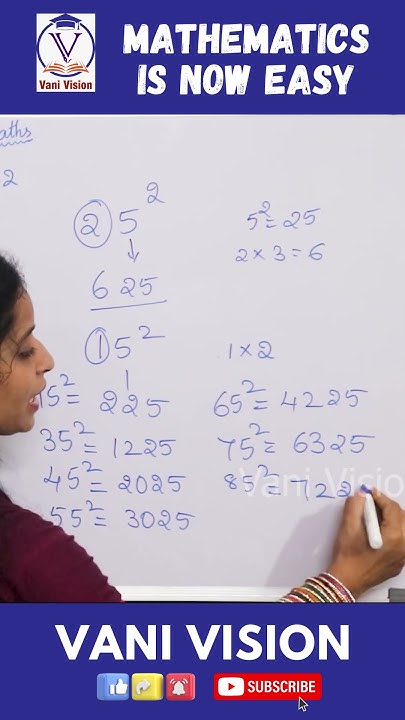 V
Vani Vision
MATHEMATICS
IS NOW EASY
2
25²
5² = 25
2 × 3 = 6
625
15²
1 × 2
15² = 225
65² = 4225
35² = 1225
75² = 6325
45² = 2025
Vani Vision
85² = 722
55² = 3025
VANI VISION
SUBSCRIBE